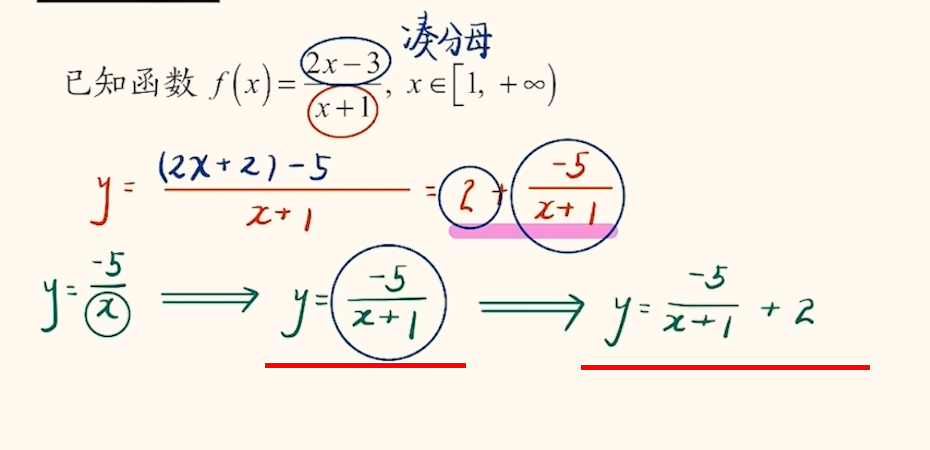 凑分母
已知函数 f(x)=\frac{2x-3}{x+1}, x∈[1, +∞)
y=\frac{(2x+2)-5}{x+1}=2+\frac{-5}{x+1}
y=\frac{-5}{x} ⟹ y=\frac{-5}{x+1} ⟹ y=\frac{-5}{x+1}+2